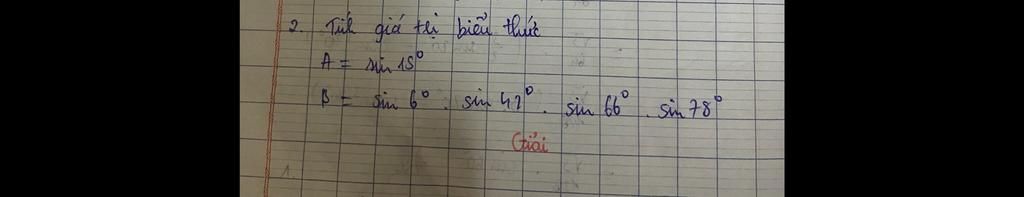 2. Tính giá trị biểu thức
A = sin 15°
B = sin 6° . sin 42° . sin 66° . sin 78°
Giải
1.